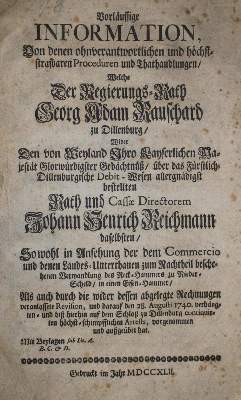 Vorläuffige
INFORMATION,
Von denen ohnverantwortlichen und höchst-
strafbaren Proceduren und Thathandlungen/
Welche
Der Regierungs-Rath
Georg Adam Rauschard
zu Dillenburg/
Wider
Den von Weyland Ihro Kayserlichen Ma-
jestät Glorwürdigster Gedächtnüß/ über das Fürstlich-
Dillenburgische Debit-Wesen allergnädigst
bestellten
Rath und Cassæ Directorem
Johann Henrich Reichmann
daselbsten/
Sowohl in Ansehung der dem Commercio
und denen Landes-Unterthanen zum Nachtheil besche-
henen Verwandlung des Reck-Hammers zu Nieder-
Scheld/ in einen Eisen-Hammer/
Als auch durch die wider dessen abgelegte Rechnungen
veranlassete Revision, und darauf den 28. Augusti 1740. verhäng-
ten- und biß hierhin auf dem Schloß zu Dillenburg
ten höchst-schimpfflichen Arrests, vorgenommen
und außgeübet hat.
Mit Beylagen sub Lit. A.
B. C. & D.
Gedruckt im Jahr MDCCXLII.